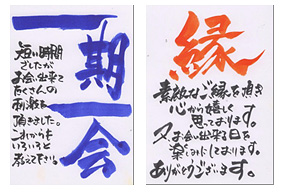 一期一会
短い時間
でしたが
お会い出来て
たくさんの
刺激を
頂きました。
これからも
いろいろと
教えて下さい。
縁
素敵なご縁を頂き
心から嬉しく
思っております。
又お会い出来る日を
楽しみにしております。
ありがとうございます。